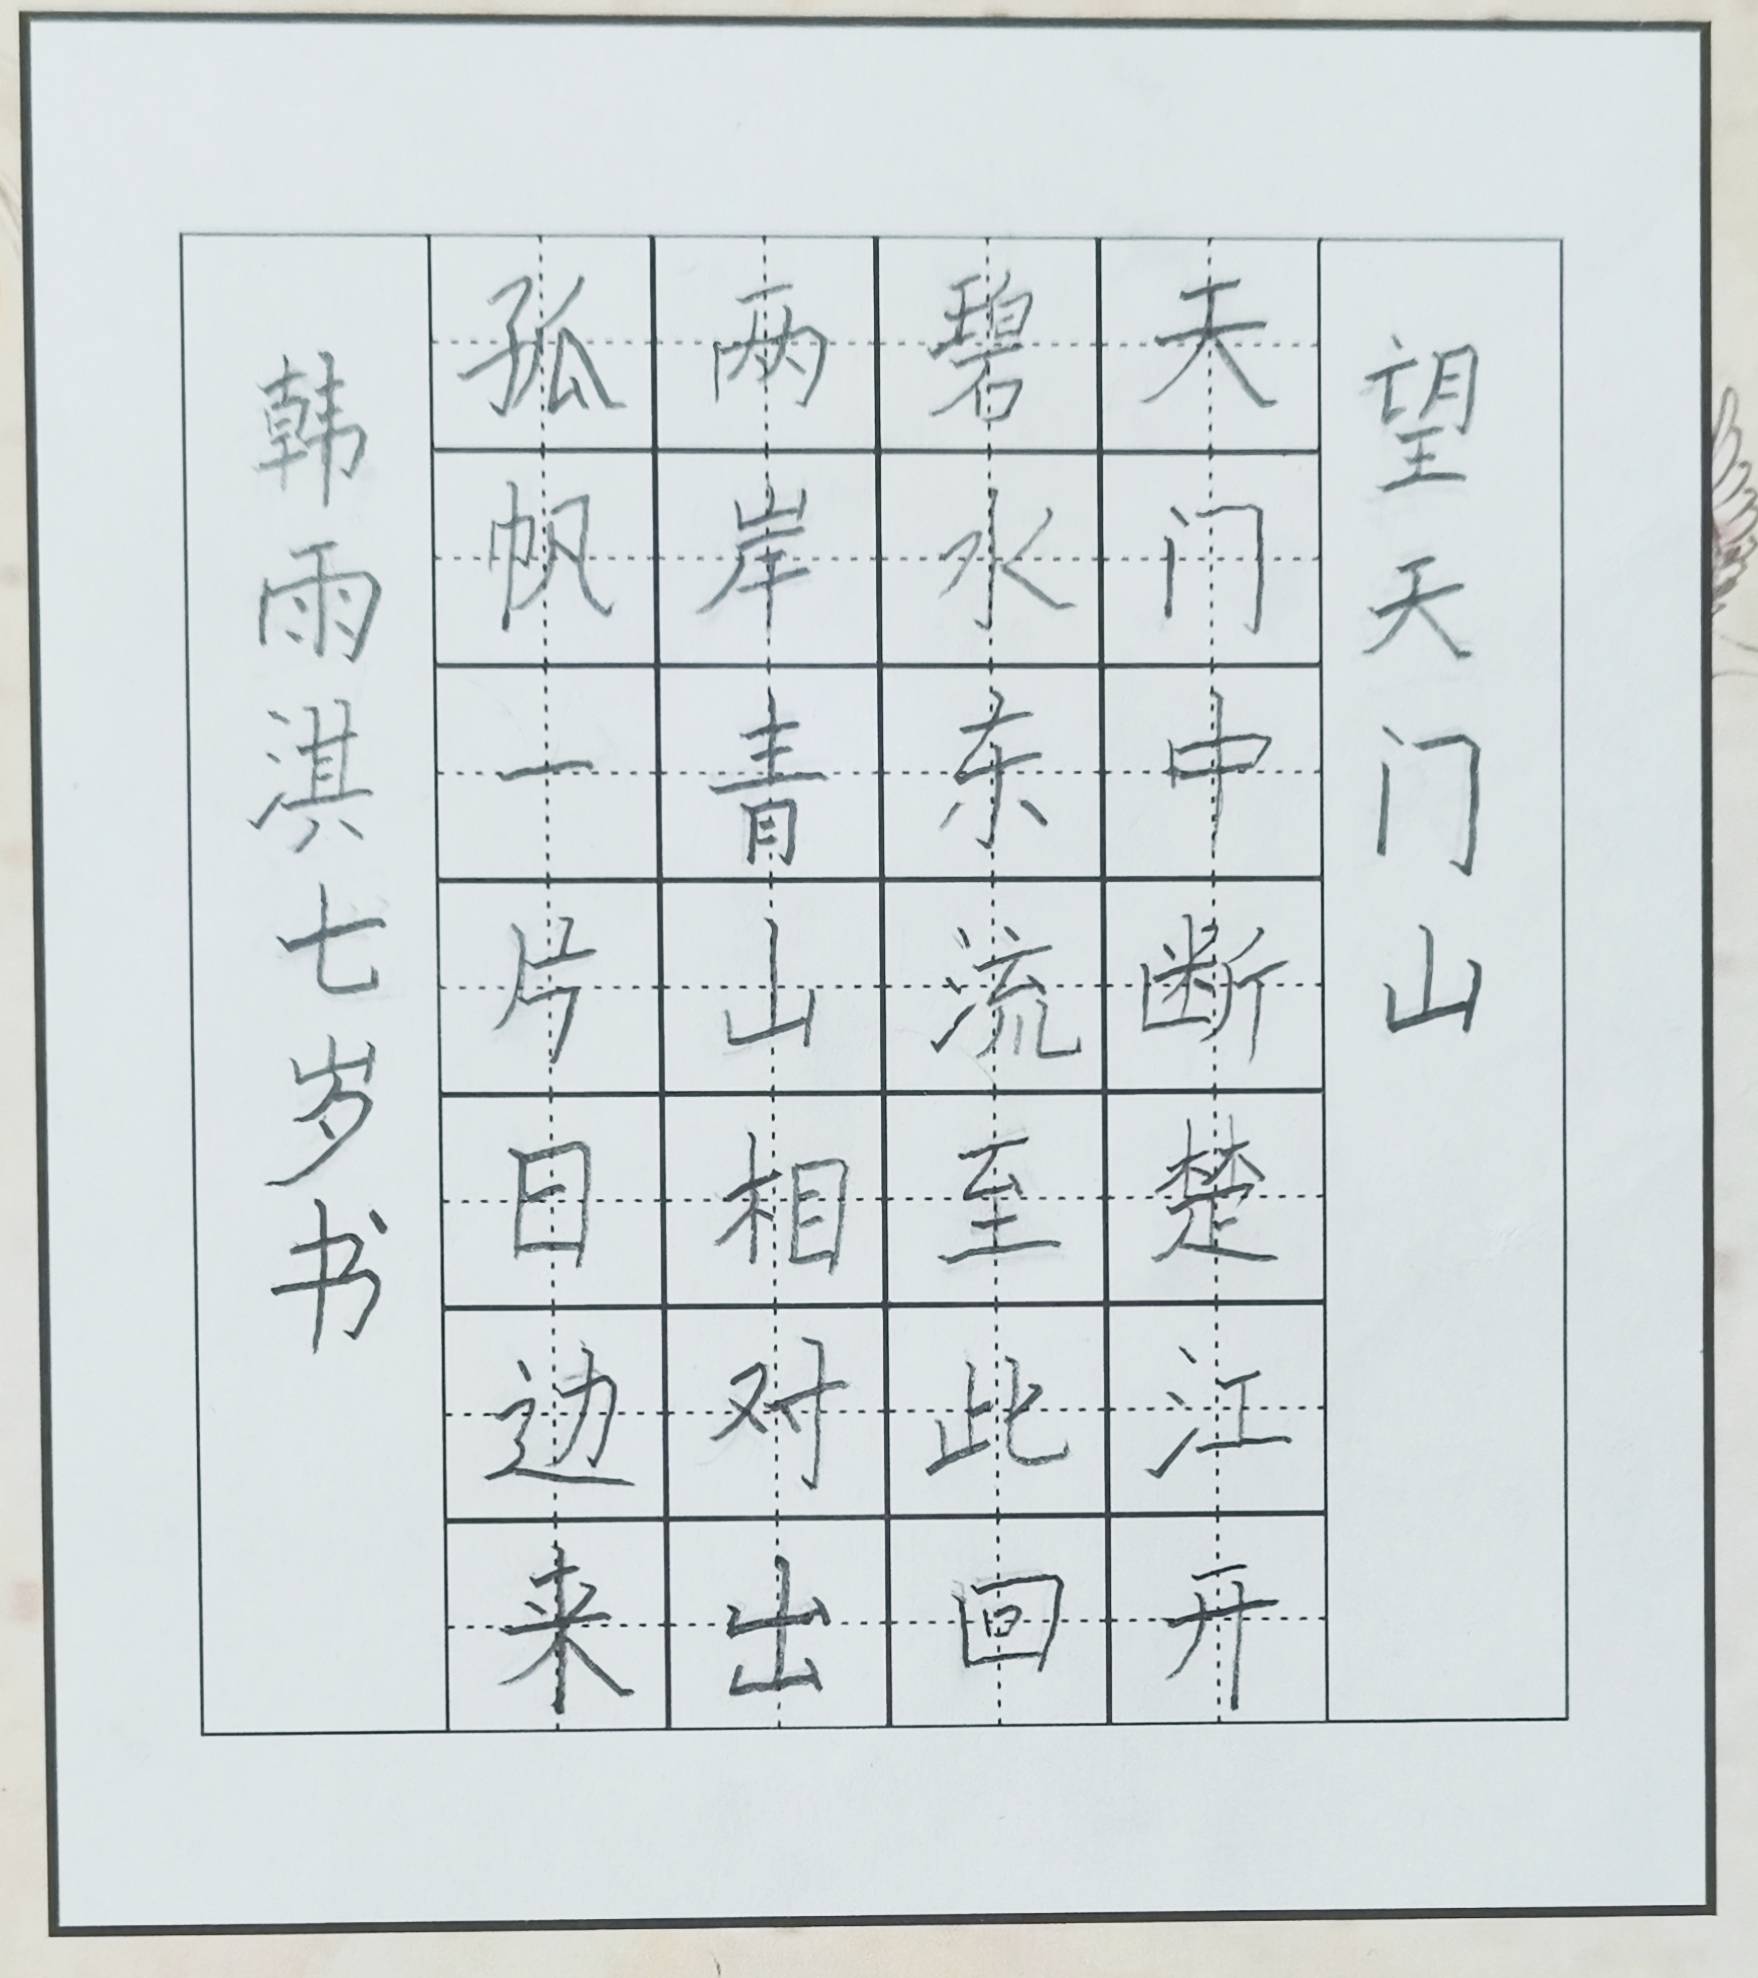 望天门山
天门中断楚江开
碧水东流至此回
两岸青山相对出
孤帆一片日边来
韩雨淇七岁书